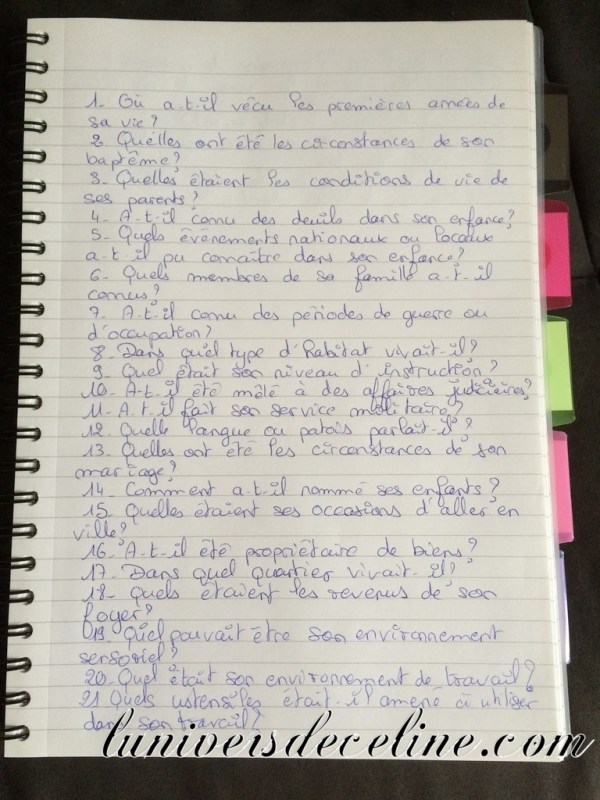 1- Où a-t-il vécu les premières années de
sa vie?
2. Quelles ont été les circonstances de son
baptême?
3. Quelles étaient les conditions de vie de
ses parents?
4- A-t-il connu des deuils dans son enfance?
5- Quels événements nationaux ou locaux
a-t-il pu connaître dans son enfance?
6- Quels membres de sa famille a-t-il
connus?
7. A-t-il connu des périodes de guerre ou
d'occupation?
8- Dans quel type d'habitat vivait-il?
9- Quel était son niveau d'instruction?
10- A-t-il été mêlé à des affaires judiciaires?
11- A-t-il fait son service militaire?
12- Quelle langue ou patois parlait-il?
13- Quelles ont été les circonstances de son
mariage?
14- Comment a-t-il nommé ses enfants?
15- Quelles étaient ses occasions d'aller en
ville?
16- A-t-il été propriétaire de biens?
17- Dans quel quartier vivait-il?
18- Quels étaient les revenus de son
foyer?
19. Quel pouvait être son environnement
sensoriel?
20- Quel était son environnement de travail?
21 Quels ustensiles était-il amené à utiliser
dans son travail?
luniversdeceline.com